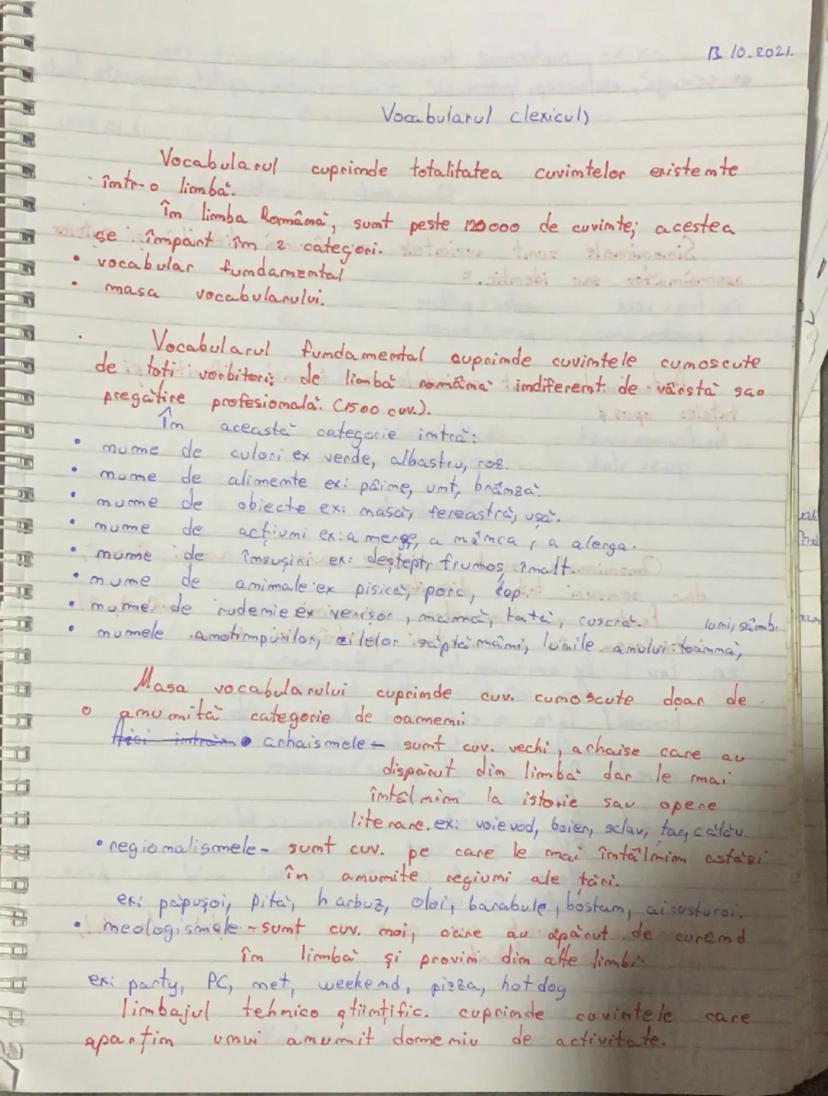 13.10.2021.
Vocabularul (lexicul)
Vocabularul cuprinde totalitatea cuvintelor existente
într-o limbă.
În limba Română, sunt peste 120000 de cuvinte; acestea
se împart în 2 categori.
• vocabular fundamental
• masa vocabularului.
Vocabularul fundamental cuprinde cuvintele cunoscute
de toti vorbitori; de limbă română indiferent de vârstă sao
pregătire profesională. (1500 cuv.).
În această categorie intră:
• nume de culori ex verde, albastru, roz.
• nume de alimente ex: pâine, unt, brânză.
• nume de obiecte ex: masă, fereastră, ușă.
• nume de acțiuni ex: a merge, a mânca, a alerga.
• nume de însușini ex: deștept, frumos, înalt.
• nume de animale ex pisică, porc, țap.
• nume de rudenie ex verișor, mamă, tată, cuscră. luni, sâmb.
• numele anotimpurilor, zilelor săptămâni, lunile anului: toamnă,
Masa vocabularului cuprinde cuv. cunoscute doar de
o anumită categorie de oameni:
Aici intrăm • arhaismele - sunt cuv. vechi, arhaise care au
dispărut din limbă dar le mai
întâlnim la istorie sau opere
literare. ex: voievod, boier, sclav, țar, călău.
• regionalismele - sunt cuv. pe care le mai întâlnim astăzi
în anumite regiuni ale țări.
ex: păpușoi, pită, harbuz, oloi, barabule, bostan,
• neologismele - sunt cuv. noi, care au apărut de curend
în limbă și provin din alte limbi.
ex: party, PC, net, weekend, pizza, hot dog
limbajul tehnico științific. cuprinde cuvintele care
aparțin unui anumit domeniu de activitate.